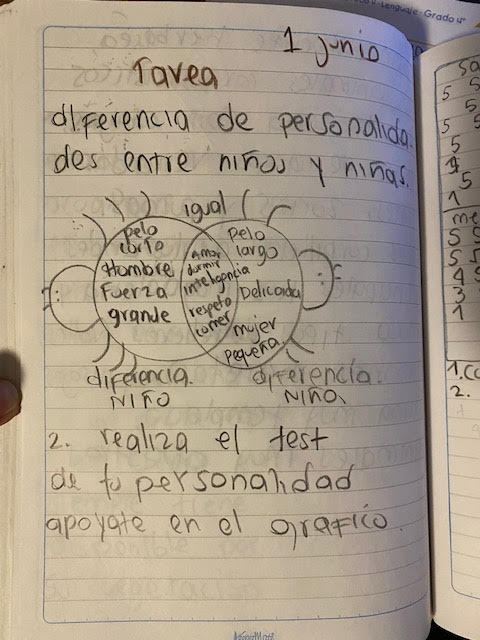 Lenguaje - Grado 4°
1 junio
Tarea
diferencia de personalida
des entre niños y niñas.
igual
pelo
corto
Hombre
Fuerza
grande
Amor
dormir
inteligencia
respeto
comer
Pelo
largo
Delicada
mujer
pequeña.
diferencia.
NIÑO
diferencia.
NIÑA
2. realiza el test
de tu personalidad
apoyate en el grafico.
5
5
5
1
5
5
4
3
1
2.